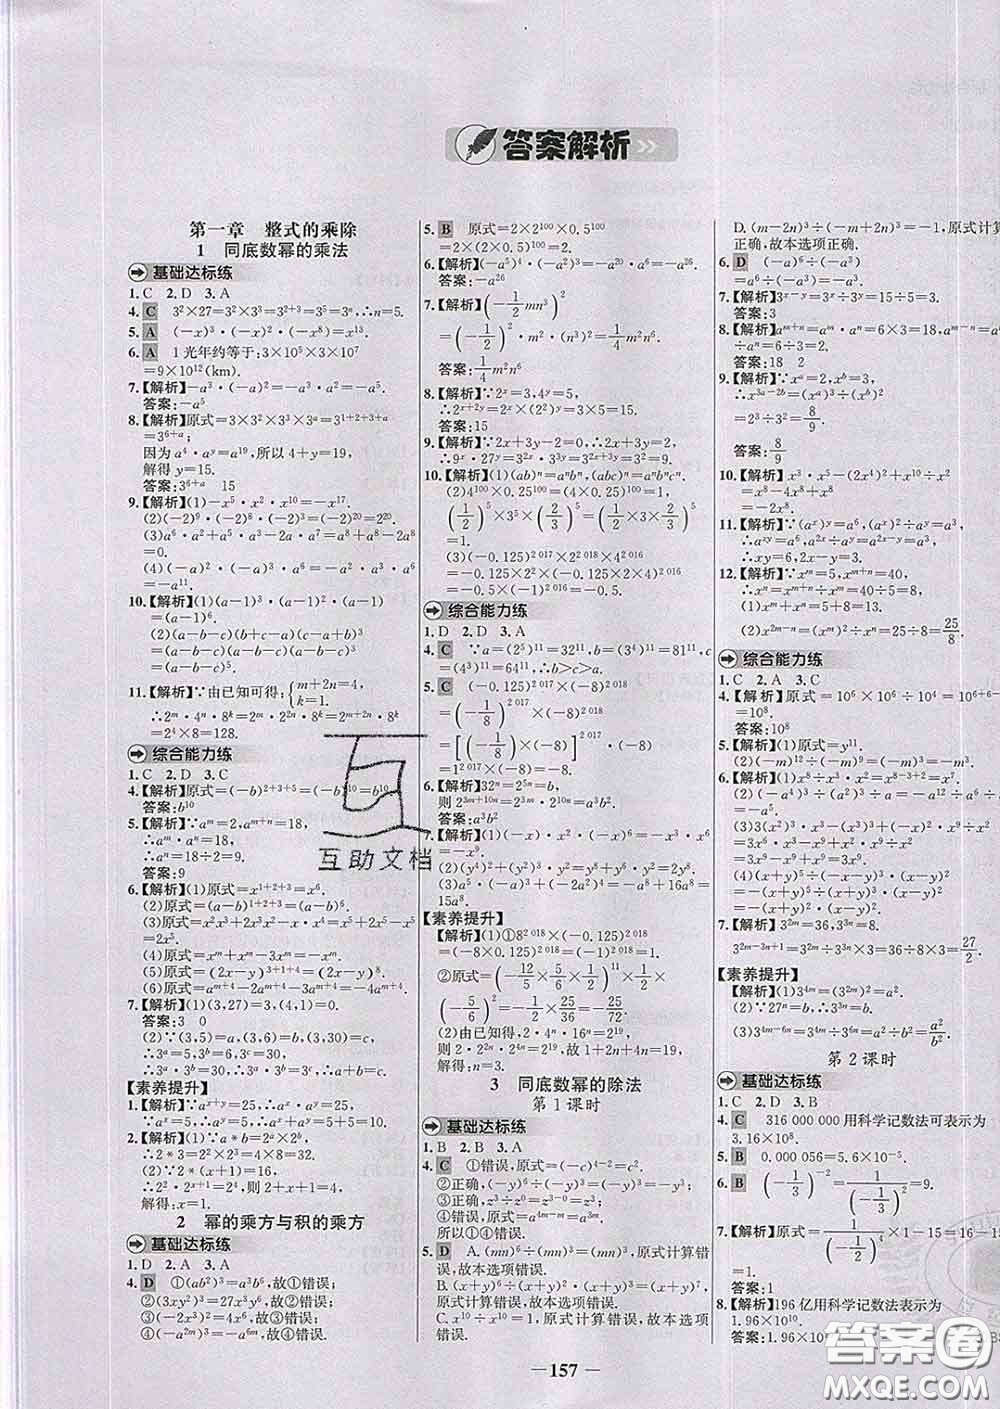 答案解析
第一章　整式的乘除
1　同底数幂的乘法
基础达标练
1. C　2. D　3. A
4. C　3²×27=3²×3³=3²⁺³=3⁵=3ⁿ,∴n=5.
5. A　(-x)³·(-x)²·(-x⁸)=x¹³.
6. A　1光年约等于:3×10⁵×3×10⁷
=9×10¹²(km).
7.【解析】-a³·(-a)²=-a³·a²=-a⁵.
答案:-a⁵
8.【解析】原式=3×3²×3³×3ᵃ=3¹⁺²⁺³⁺ᵃ
=3⁶⁺ᵃ;
因为a⁴·aʸ=a¹⁹,所以4+y=19,
解得y=15.
答案:3⁶⁺ᵃ　15
9.【解析】(1)-x⁵·x²·x¹⁰=-x¹⁷.
(2)(-2)⁹·(-2)⁸·(-2)³=2²⁰.
(3)a⁶·a²+a⁵·a³-2a·a⁷=2a⁸-2a⁸
=0.
(4)(-a)²·(-a)³·(-a)⁶=a²·(-a³)·a⁶=
-a¹¹.
10.【解析】(1)(a-1)³·(a-1)²·(a-1)
=(a-1)⁶.
(2)(a-b-c)(b+c-a)(c-a+b)²
=-(a-b-c)(a-b-c)(a-b-c)³
=-(a-b-c)⁵.
11.【解析】∵由已知可得:{m+2n=4, k=1.
∴2ᵐ·4ⁿ·8ᵏ=2ᵐ⁺²ⁿ·8ᵏ
=2⁴×8=128.
综合能力练
1. C　2. D　3. C
4.【解析】原式=(-b)²⁺³⁺⁵=(-b)¹⁰=b¹⁰
答案:b¹⁰
5.【解析】∵aᵐ=2,aᵐ⁺ⁿ=18,
∴aⁿ=18÷2=9.
答案:9
6.【解析】(1)原式=x¹⁺²⁺³=x⁶.
(2)原式=(a-b)¹⁺²⁺³=(a-b)⁶.
(3)原式=x²x³+2x³x²-x·x⁴=2x⁵.
(4)原式=xᵐ+xᵐ-3xᵐ=-xᵐ.
(5)原式=(2x-y)³⁺¹⁺⁴=(2x-y)⁸.
(6)原式=2aᵐ⁺⁴-3aᵐ⁺⁴=-aᵐ⁺⁴.
7.【解析】(1)(3,27)=3,(4,1)=0.
答案:3　0
(2)∵(3,5)=a,(3,6)=b,(3,30)=c,
∴3ᵃ=5,3ᵇ=6,3ᶜ=30,
∴3ᵃ·3ᵇ=30,∴3ᵃ·3ᵇ=3ᶜ,∴a+b=c.
【素养提升】
1.【解析】∵aˣ⁺ʸ=25,∴aˣ·aʸ=25,
∵aˣ=5,∴aʸ=5,∴aˣ+aʸ=5+5=10.
2.【解析】(1)∵a*b=2ᵃ×2ᵇ,
∴2*3=2²×2³=4×8=32.
(2)∵2*(x+1)=32,
∴2²·2ˣ⁺¹=2⁵,则2+x+1=5,
解得:x=1.
2　幂的乘方与积的乘方
基础达标练
1. D　2. D　3. A
4. D　①(ab²)³=a³b⁶,故①错误;
②(3xy²)³=27x³y⁶,故②错误;
③(-2x³)²=4x⁶,故③错误;
④(-a²m)³=-a⁶m³,故④错误;
5. B　原式=2×2¹⁰⁰×0.5¹⁰⁰
=2×(2×0.5)¹⁰⁰=2.
6.【解析】(-a⁵)⁴·(-a²)³=-a²⁰·a⁶=-a²⁶.
答案:-a²⁶
7.【解析】(-1/2mn³)²
=(-1/2)²·m²·(n³)²=1/4m²n⁶.
答案:1/4m²n⁶
8.【解析】∵2ˣ=3,4ʸ=5,
∴2ˣ⁺²ʸ=2ˣ×(2²)ʸ=3×5=15.
答案:15
9.【解析】∵2x+3y-2=0,∴2x+3y=2,
∴9ˣ·27ʸ=3²ˣ×3³ʸ=3²ˣ⁺³ʸ=3²=9.
10.【解析】(1)(ab)ⁿ=aⁿbⁿ,(abc)ⁿ=aⁿbⁿcⁿ.
(2)4¹⁰⁰×0.25¹⁰⁰=(4×0.25)¹⁰⁰=1,
(1/2)⁵×3⁵×(2/3)⁵=(1/2×3×2/3)⁵
=1.
(3)(-0.125)²⁰¹⁷×2²⁰¹⁸×4²⁰¹⁶
=-0.125×2×2×(-0.125×2×4)²⁰¹⁶
=-0.5×(-1)²⁰¹⁶=-0.5×1=-0.5.
综合能力练
1. D　2. D　3. A
4. C　∵a=(2⁵)¹¹=32¹¹,b=(3⁴)¹¹=81¹¹,c
=(4³)¹¹=64¹¹,∴b>c>a.
5. C　(-0.125)²⁰¹⁷×(-8)²⁰¹⁷
=(-1/8)²⁰¹⁷×(-8)²⁰¹⁷
=[(-1/8)×(-8)]²⁰¹⁷=
1²⁰¹⁷=1.
6.【解析】32ⁿ=2⁵ⁿ=b,
则2³ᵐ⁺¹⁰ⁿ=2³ᵐ×2¹⁰ⁿ=a³×b²=a³b².
答案:a³b²
7.【解析】(1)(-x)·x²·(-x)⁶=-x³·x⁶
=-x⁹.
(2)(y⁴)²+(y²)³·y²=y⁸+y⁸=2y⁸.
(3)a³·a⁵+(-a²)⁴-(-2a⁴)²=a⁸+a⁸... 
15a⁸.
【素养提升】
【解析】(1)①8²⁰¹⁸×(-0.125)²⁰¹⁸=
(-8×0.125)²⁰¹⁸=(-1)²⁰¹⁸=1.
(2)由已知得,2·4ⁿ·16ⁿ=2¹⁹,
则2·2²ⁿ·2⁴ⁿ=2¹⁹,故1+2n+4n=19,
解得:n=3.
3　同底数幂的除法
第1课时
基础达标练
1. B　2. B　3. A
4. C　①错误,原式=(-c)⁴⁻²=c²;
②正确,(-y)⁶÷(-y)³=(-y)³=-y³;
③正确,z³÷z⁰=z³⁻⁰=z³;
④错误,原式=a⁴ᵐ⁻ᵐ=a³ᵐ.
所以①④错误.
5. D　A.(mn)⁶÷(mn)³=(mn)³,原式计算错
误,故本选项错误.
B.(x+y)⁶÷(x+y)²·(x+y)³=(x+y)⁷,
原式计算错误,故本选项错误.
C. x¹⁰÷x¹⁰=1,原式计算错误,故本选项
错误.
D.(m-2n)³÷(-m+2n)³=-1,原式计算
正确,故本选项正确.
6. D　(-a)⁶÷(-a)³=(-a)³=-a³.
7.【解析】3ˣ⁻ʸ=3ˣ÷3ʸ=15÷5=3.
答案:3
8.【解析】aᵐ⁺ⁿ=aᵐ·aⁿ=6×3=18,aᵐ⁻ⁿ=aᵐ
÷aⁿ=6÷3=2.
答案:18　2
9.【解析】∵xᵃ=2,xᵇ=3,
∴x³ᵃ⁻²ᵇ=(xᵃ)³÷(xᵇ)²
=2³÷3²=8/9.
答案:8/9
10.【解析】x³·x⁵-(2x⁴)²+x¹⁰÷x²
=x⁸-4x⁸+x⁸
=-2x⁸.
11.【解析】∵(aˣ)ʸ=a⁶,(aˣ)²÷aʸ=a³,
∴aˣʸ=a⁶,a²ˣ÷aʸ=a²ˣ⁻ʸ=a³,
∴xy=6,2x-y=3.
12.【解析】∵xᵐ=5,xᵐ⁺ⁿ=40,
∴xⁿ=xᵐ⁺ⁿ÷xᵐ=40÷5=8.
(1)xᵐ+xⁿ=5+8=13.
(2)x²ᵐ⁻ⁿ=(xᵐ)²÷xⁿ=25÷8=25/8.
综合能力练
1. C　2. A　3. C
4.【解析】原式=10⁶×10⁴÷10²=10⁶⁺
=10⁸.
答案:10⁸
5.【解析】(1)原式=y¹¹.
(2)(-m)¹²÷(-m)⁹=(-m)³=-m³.
6.【解析】(1)x⁸÷x³·x²=x⁸⁻³⁺²=x⁷.
(3)3(x²)³·x³-(x³)³+(-x)²·x⁹÷x²=
3x⁹-x⁹+x⁹=3x⁹.
(4)(x+y)⁵÷(-x-y)²÷(x+y)=
7.【解析】3³ᵐ=36,3³ⁿ=8,
3²ᵐ⁻³ⁿ⁺¹=3²ᵐ÷3³ⁿ×3=36÷8×3=27/2.
【素养提升】
【解析】(1)3⁴ᵐ=(3²ᵐ)²=a².
(2)∵27ⁿ=b,∴3³ⁿ=b.
(3)3⁴ᵐ⁻⁶ⁿ=3⁴ᵐ÷3⁶ⁿ=a²÷b²=a²/b².
第2课时
基础达标练
1. C　2. D　3. B
4. C　316 000 000用科学记数法可表示为
3.16×10⁸.
5. B　0.000 056=5.6×10⁻⁵.
6. B　(-1/3)⁻²=1/(-1/3)²=9.
7.【解析】原式=1/(-1/2)⁴×1-15=16-15
=1.
答案:1
8.【解析】196亿用科学记数法表示为
1.96×10¹⁰.
答案:1.96×10¹⁰
— 157 —
互助文档
答案圈
MXQE.COM